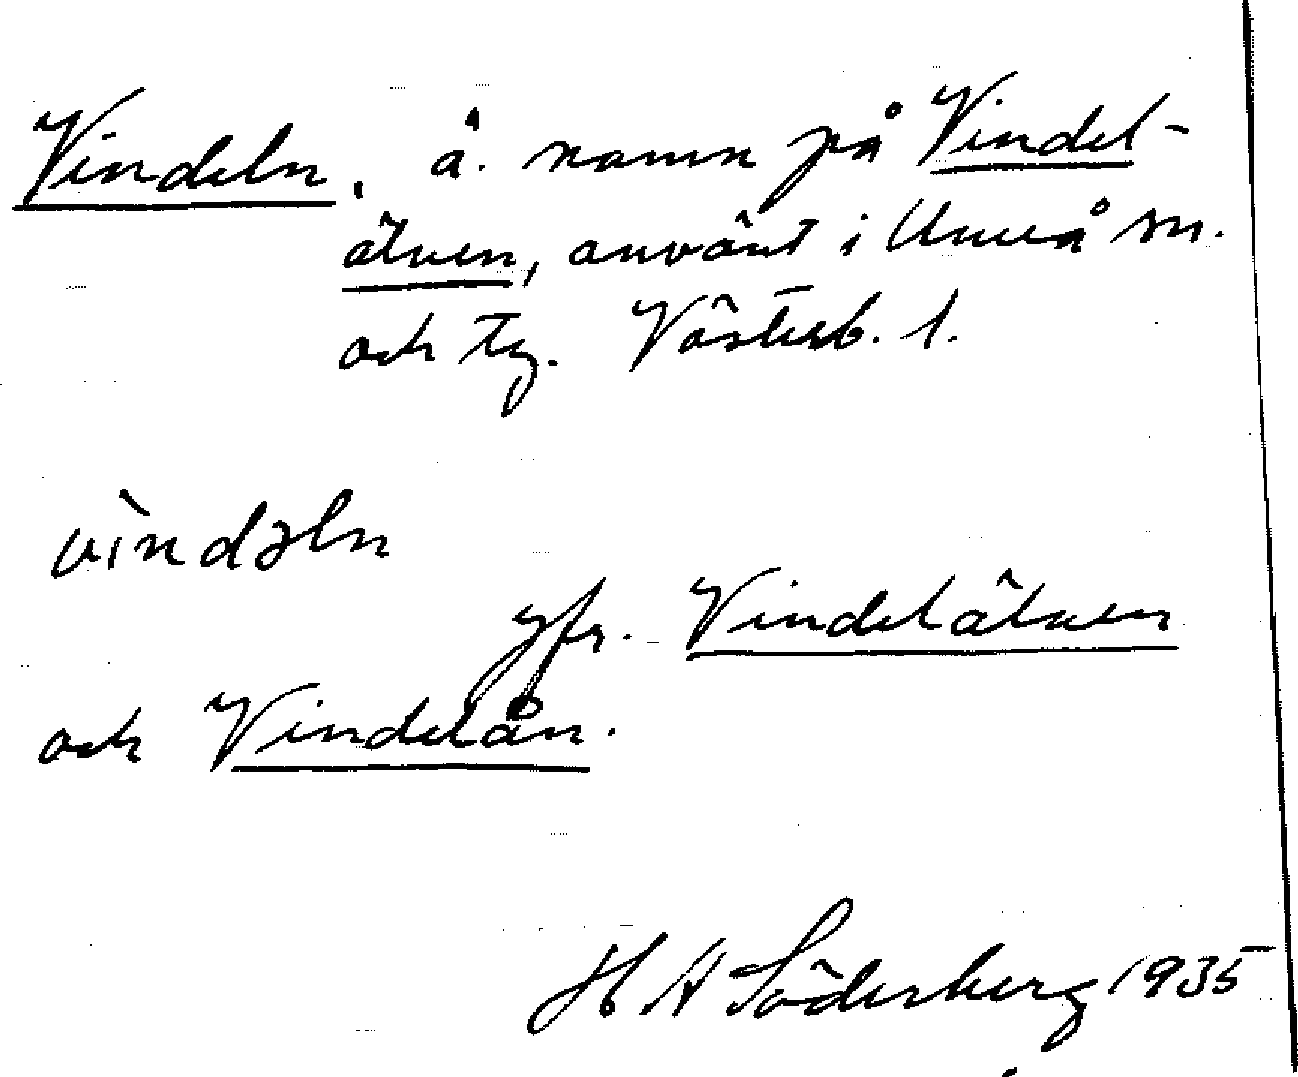 Vindeln, å. namn på Vindel-
älven, använt i Umeå sn.
och tg. Västerb. l.
vìndəln
jfr. Vindelälven
och Vindelån.
H A Söderberg 1935